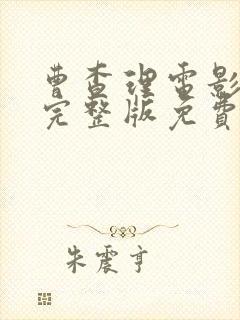 曹查理电影
完整版免費
朱震亨